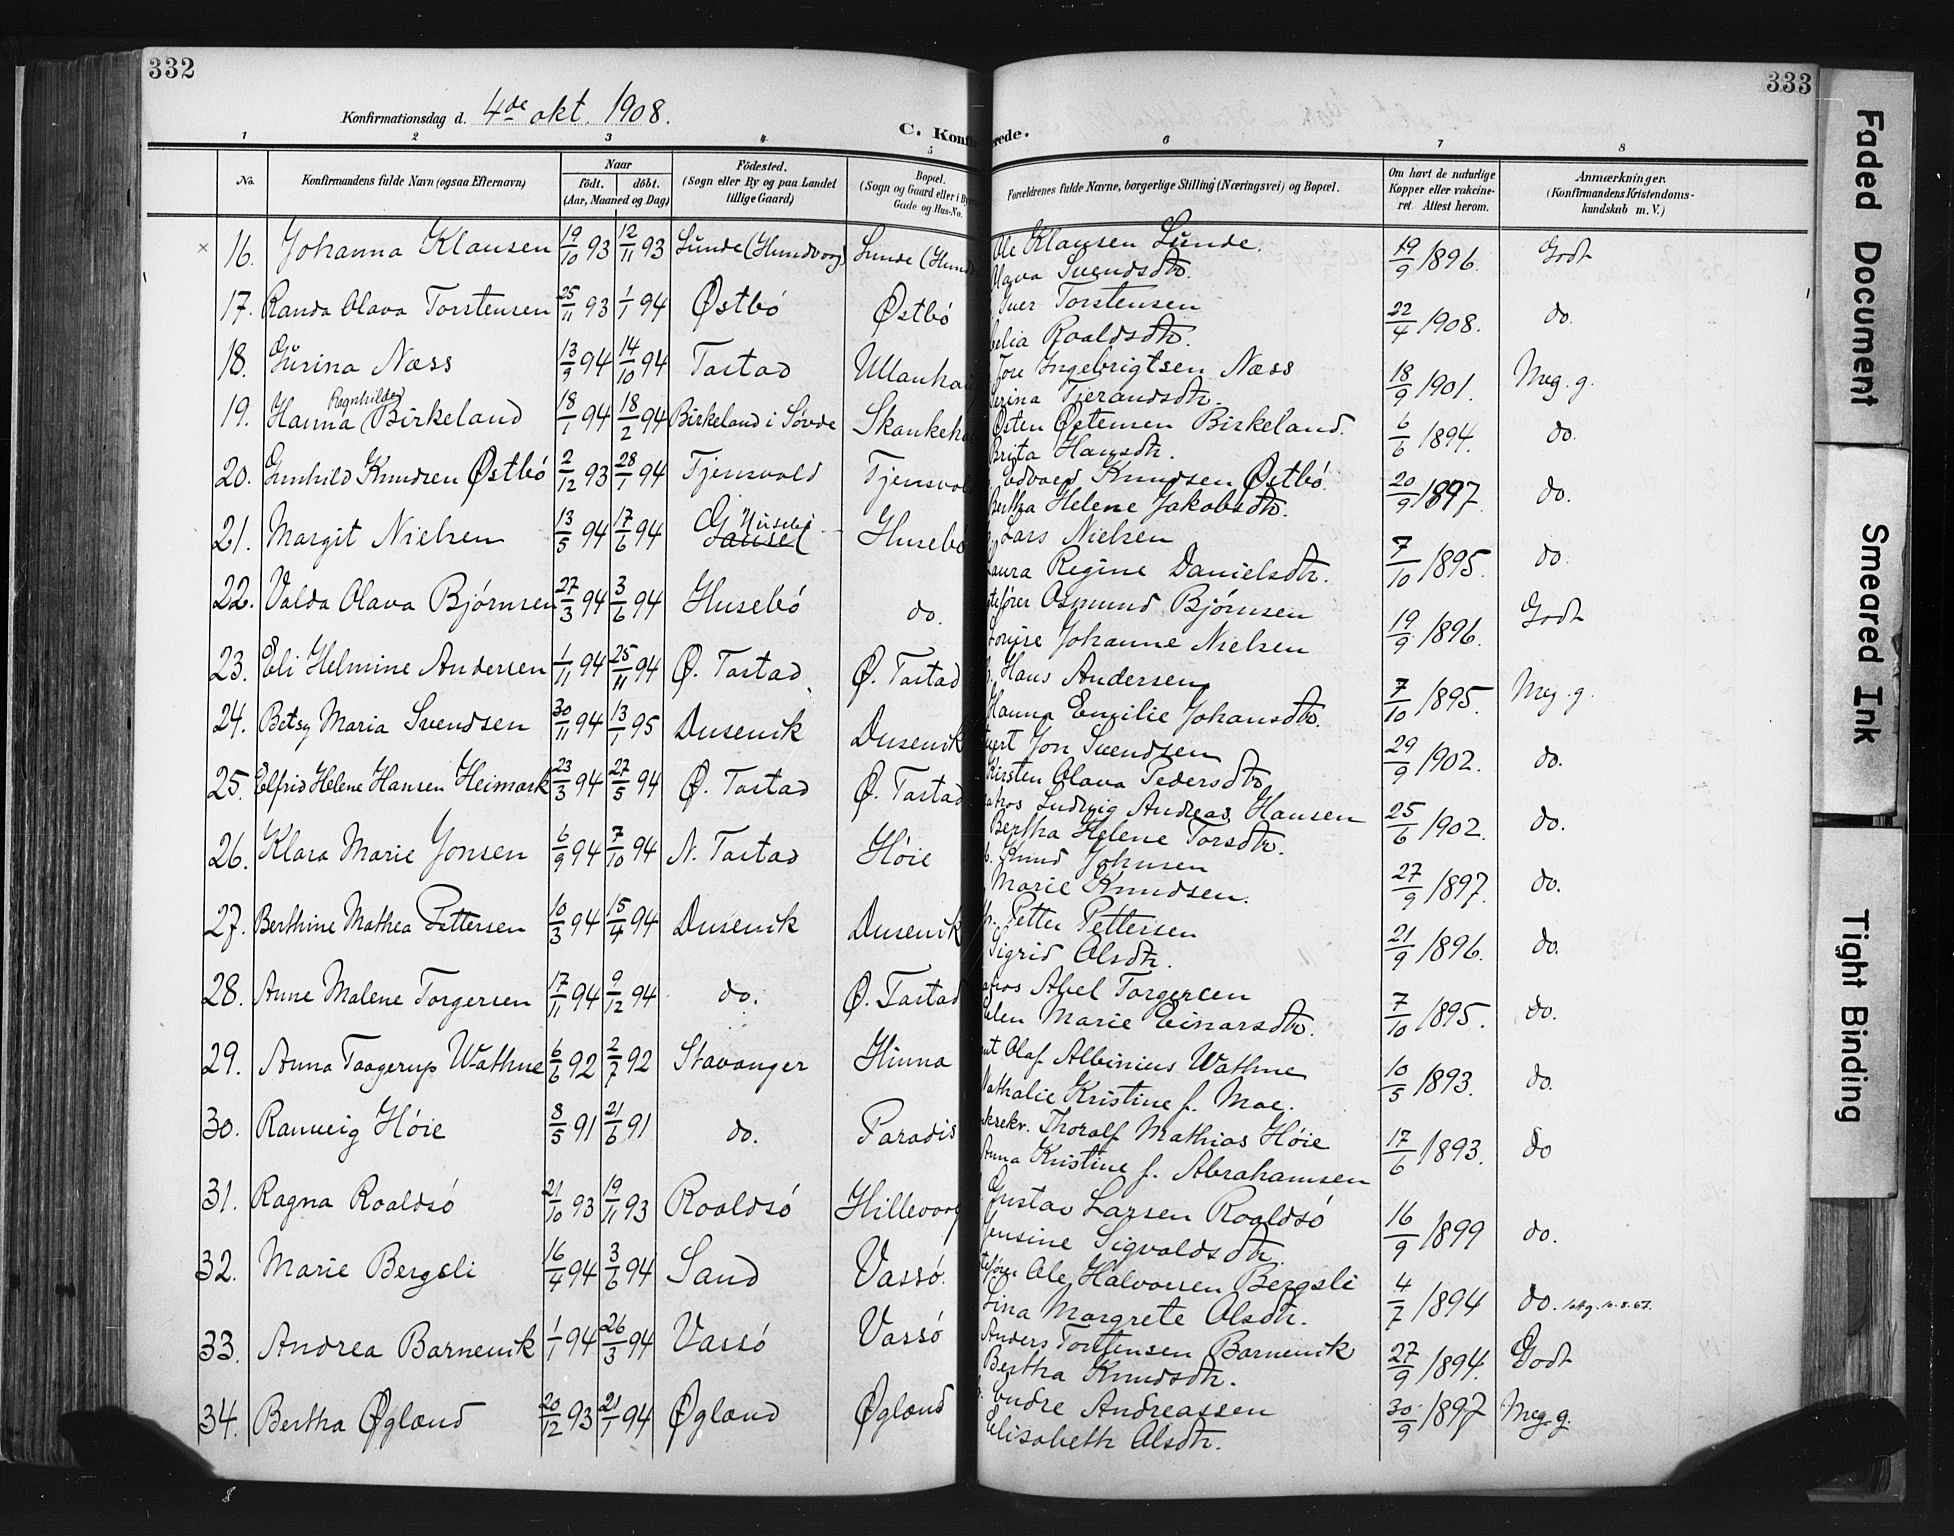 332
333
Konfirmationsdag d. 4de okt. 1908.
C. Konfirmerede.
1 2 3 4 5 6 7 8
No.
Konfirmandens fulde Navn (ogsaa Efternavn)
Naar
födt. döbt.
(Aar, Maaned og Dag)
Födested.
(Sogn eller By og paa Landet
tillige Gaard)
Bopæl.
(Sogn og Gaard eller i By
Gade og Hus-No.
Forældrenes fulde Navne, borgerlige Stilling (Næringsvei) og Bopæl.
Om havt de naturlige
Kopper eller vakcine-
ret. Attest herom.
Anmærkninger.
(Konfirmandens Kristendoms-
kundskab m. V.)
× 16. Johanna Klausen 19/10 93 12/11 93 Lunde (Hundvaag) Lunde (Hund Ole Klausen Lunde. 19/9 1896. Godt
Olava Svendsdtr.
17. Randa Olava Torstensen 25/11 93 1/1 94 Østbö Østbö Iver Torstensen 22/4 1908. do.
Roaldsdtr.
18. Gurina Næss 13/9 94 14/10 94 Tastad Ullanhau Tore Ingebrigtsen Næss 18/9 1901. Meg. g.
Serina Tjerandsdtr.
19. Hanna Ragnhilda Birkeland 18/1 94 18/2 94 Birkeland i Søvde Skankehol Østen Østensen Birkeland. 6/6 1894. do.
Brita Hansdtr.
20. Gunhild Knudsen Østbö 2/12 93 28/1 94 Tjensvold Tjensvol Edvard Knudsen Østbö. 20/9 1897. do.
Bertha Helene Jakobsdtr.
21. Margit Nielsen 13/5 94 17/6 94 Husebö Gausel Husebö Lars Nielsen 7/10 1895. do.
Laura Regine Danielsdtr.
22. Valda Olava Björnsen 27/3 94 3/6 94 Husebö do. Osmund Björnsen 19/9 1896. Godt
Lovise Johanne Nielsen
23. Eli Helmine Andersen 1/11 94 25/11 94 Ø. Tastad Ø. Tastad Hans Andersen 7/10 1895. Meg. g.
Hanna Emilie Johansdtr.
24. Betsy Maria Svendsen 30/11 94 13/1 95 Dusevik Dusevik Jon Svendsen 29/9 1902. do.
Kirsten Olava Pedersdtr.
25. Elfrid Helene Hansen Heimark 23/3 94 27/5 94 Ø. Tastad Ø. Tastad Ludvig Andreas Hansen 25/6 1902. do.
Bertha Helene Torsdtr.
26. Klara Marie Jonsen 6/9 94 7/10 94 N. Tastad Höie Knud Johnsen 27/9 1897. do.
Marie Knudsen.
27. Berthine Mathea Pettersen 10/3 94 15/4 94 Dusevik Dusevik Petter Pettersen 21/9 1896. do.
Sigrid Olsdtr.
28. Anne Malene Torgersen 17/11 94 9/12 94 do. Ø. Tastad Abel Torgersen 7/10 1895. do.
Elen Marie Einarsdtr.
29. Anna Taagerup Wathne 6/6 92 2/7 92 Stavanger Hinna Olaf Albinius Wathne 10/5 1893. do.
Nathalie Kristine f. Moe.
30. Rannveig Höie 8/5 91 21/6 91 do. Paradis Thoralf Mathias Höie 17/6 1893. do
Anna Kristine f. Abrahamsen
31. Ragna Roaldsö 21/10 93 19/11 93 Roaldsö Hillevaag Gustav Larsen Roaldsö 16/9 1899 do.
Jensine Sigvaldsdtr.
32. Marie Bergsli 16/4 94 3/6 94 Sand Vassö. Ole Halvorsen Bergsli 4/7 1894 do.
Lina Margrete Olsdtr.
33. Andrea Barnevik 1/1 94 26/3 94 Vassö Vassö Anders Torstensen Barnevik 27/9 1894. Godt
Bertha Knudsdtr.
34. Bertha Øgland 20/12 93 21/1 94 Øgland Øgland Endre Andreassen 30/9 1897 Meg. g.
Elisabeth Olsdtr.
Faded Document
Smeared Ink
Tight Binding